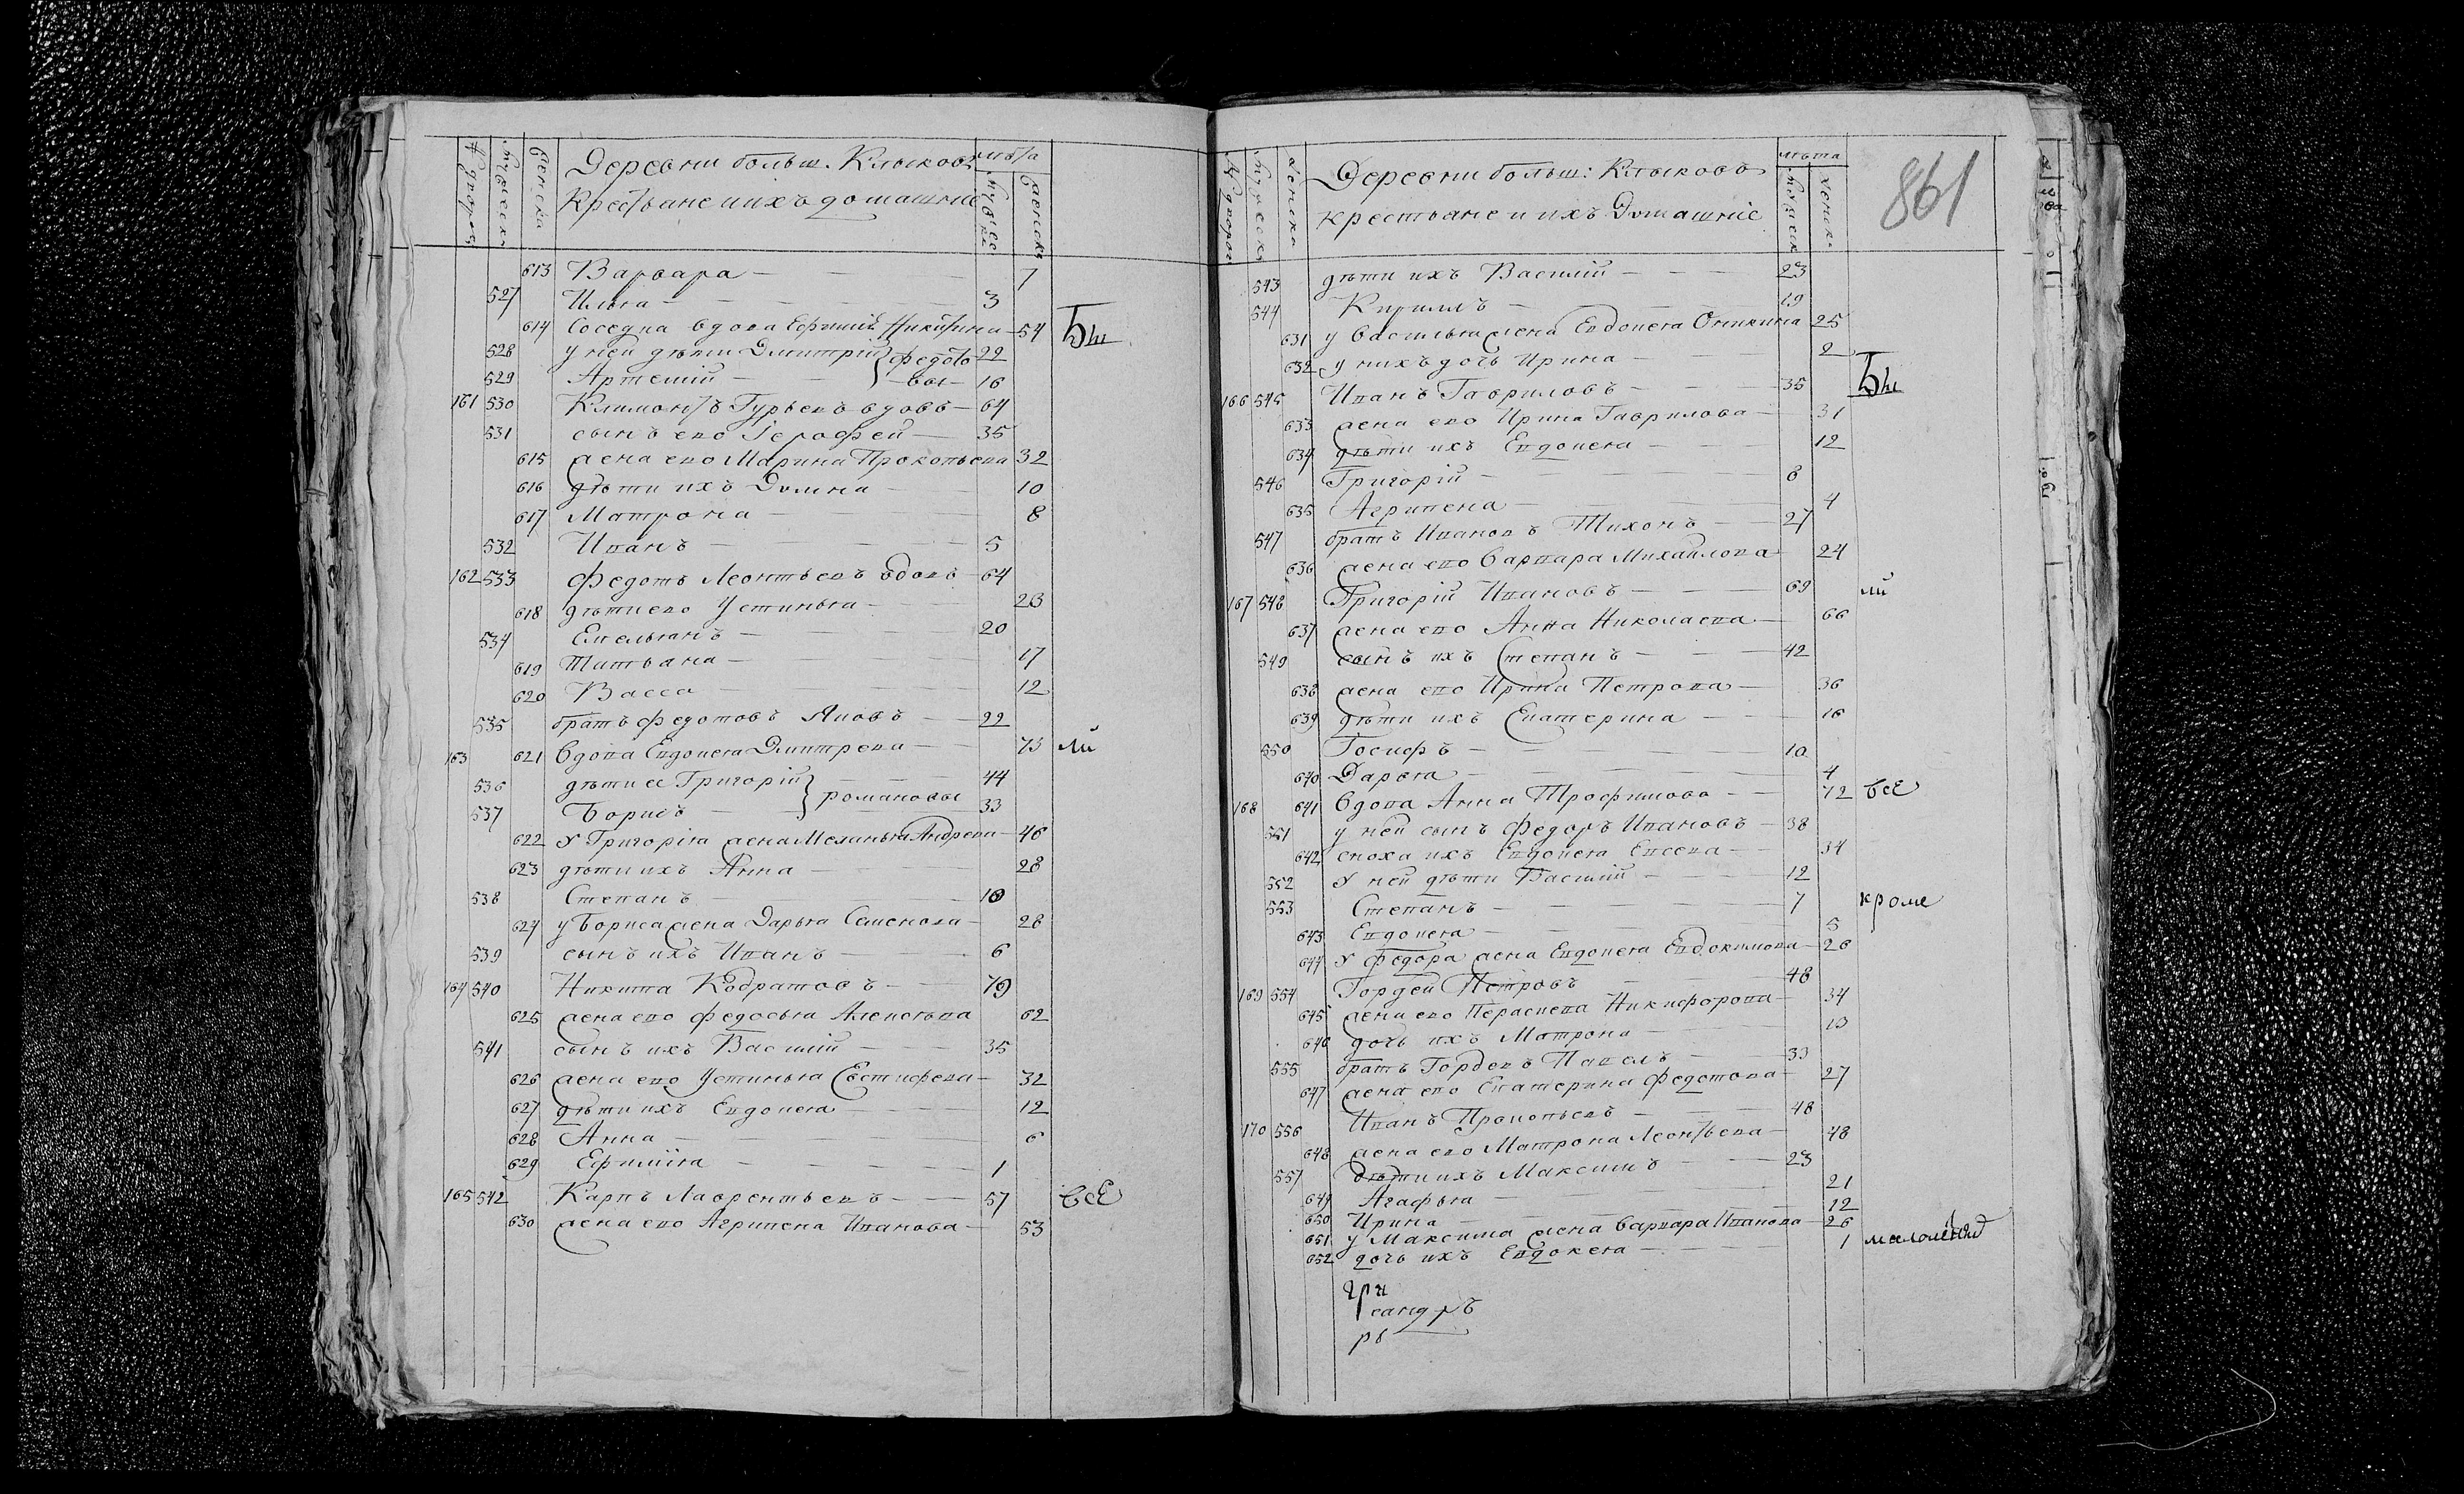 № дворов мужеска женска Деревни больш. Клыково лѣта мужеска женска
Крестьяне и ихъ домашние
613 Варвара 7
527 Илья 3
614 Соседка вдова Ефимия Никитина 54 Бы
528 у ней дѣти Дмитрий } Федото 22
529 Артемий } вы 16
161 530 Климонтъ Гурьевъ вдовъ 64
531 сынъ ево Iерофей 35
615 жена ево Марина Прокопьева 32
616 дѣти ихъ Домна 10
617 Матрона 8
532 Иванъ 5
162 533 Федотъ Леонтьевъ вдовъ 64
618 дѣти ево Устинья 23
534 Емельянъ 20
619 Татьяна 17
620 Васса 12
535 братъ Федотовъ Яковъ 22
163 621 Вдова Евдокея Дмитрева 73 ли
536 дѣти ее Григорiй } романовы 44
537 Борисъ 33
622 У Григорiя жена Меланья Андрева 46
623 дѣти ихъ Анна 28
538 Степанъ 10
624 у Бориса жена Дарья Семенова 28
539 сынъ ихъ Иванъ 6
164 540 Никита Кодратовъ 79
625 жена ево Федосья Алексѣева 62
541 сынъ ихъ Василiй 35
626 жена ево Устинья Евстифева 32
627 дѣти ихъ Евдокея 12
628 Анна 6
629 Ефимiя 1
165 542 Карпъ Лаврентьевъ 57 ВсЕ
630 жена ево Агрипена Иванова 53
№ дворов мужеска женска Деревни больш: Клыково лѣта мужеска женска 861
крестьяне и ихъ Домашнiе
543 дѣти ихъ Василiй 23
544 Кирилъ 19
631 у Василья жена Евдокея Оникина 25
632 у нихъ дочь Ирина 2
166 545 Иванъ Гавриловъ 35 Бы
633 жена ево Ирина Гаврилова 31
634 дѣти ихъ Евдокея 12
546 Григорiй 8
635 Агрипена 4
547 братъ Ивановъ Тихонъ 27
636 жена ево Варвара Михайлова 24
167 548 Григорiй Ивановъ 69 ли
637 жена ево Анна Николаева 66
549 сынъ ихъ Степанъ 42
638 жена ево Ирина Петрова 36
639 дѣти ихъ Екатерина 16
550 Iосифъ 10
640 Дарья 4
168 641 Вдова Анна Трофимова 72 ВсЕ
551 у ней сынъ Федоръ Ивановъ 38
642 сноха ихъ Евдокея Евсева 34
552 У ней дѣти Василiй 12
553 Степанъ 7 кроме
643 Евдокея 5
644 У Федора жена Евдокея Евдокимова 26
169 554 Гордей Петровъ 48
645 жена ево Перасковя Никифорова 34
646 дочь ихъ Матрона 13
555 братъ Гордевъ Павелъ 33
647 жена ево Екатерина Федотова 27
170 556 Иванъ Прокопьевъ 48
648 жена ево Матрона Леонтьева 48
557 дѣти ихъ Максимъ 23
649 Агафья 21
650 Ирина 12
651 у Максима жена Варвара Иванова 26
652 дочь ихъ Евдокея 1